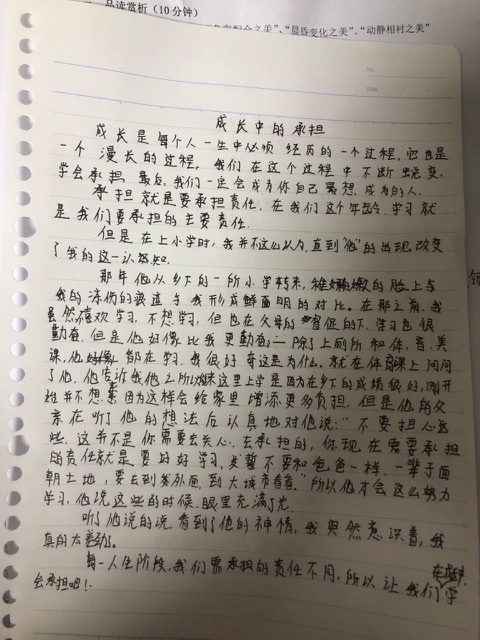 品读赏析（10分钟）
配合之美”、“晨昏变化之美”、“动静相衬之美”
No.
Date
成长中的承担
成长是每个人一生中必须经历的一个过程，它也是
一个漫长的过程，我们在这个过程中不断蜕变，
学会承担，最后，我们一定会成为你自己最想成为的人。
承担就是要承担责任，在我们这个年龄，学习就
是我们要承担的主要责任。
但是在上小学时，我并不这么认为，直到“他”的出现，改变
了我的这一认知。
那年他从乡下的一所小学转来，稚嫩的脸上与
我的形成鲜明的对比。在那之前，我
虽然喜欢学习，不想学习，但也在父母的督促的下，学习也很
勤奋，但是他好像比我更勤奋——除了上厕所和体、音、美
课，他都在学习。我很好奇这是为什么。就在体育课上问问
了他，他告诉我他之所以来这里上学是因为在乡下的成绩很好，刚开
始并不想来因为这样会给家里增添更多负担，但是他的父
亲在听了他的想法后认真地对他说：“不要担心这
些，这并不是你需要去关心，去承担的，你现在需要承担
的责任就是要好好学习，不要和爸爸一样，一辈子面
朝土地，要去到外面，到大城市看看。”所以他才会这么努力
学习，他说这些的时候，眼里充满了光。
听了他说的说，看到了他的神情，我突然意识着，我
真的太差劲。
每一人生阶段，我们需承担的责任不同，所以让我们学
会承担吧！